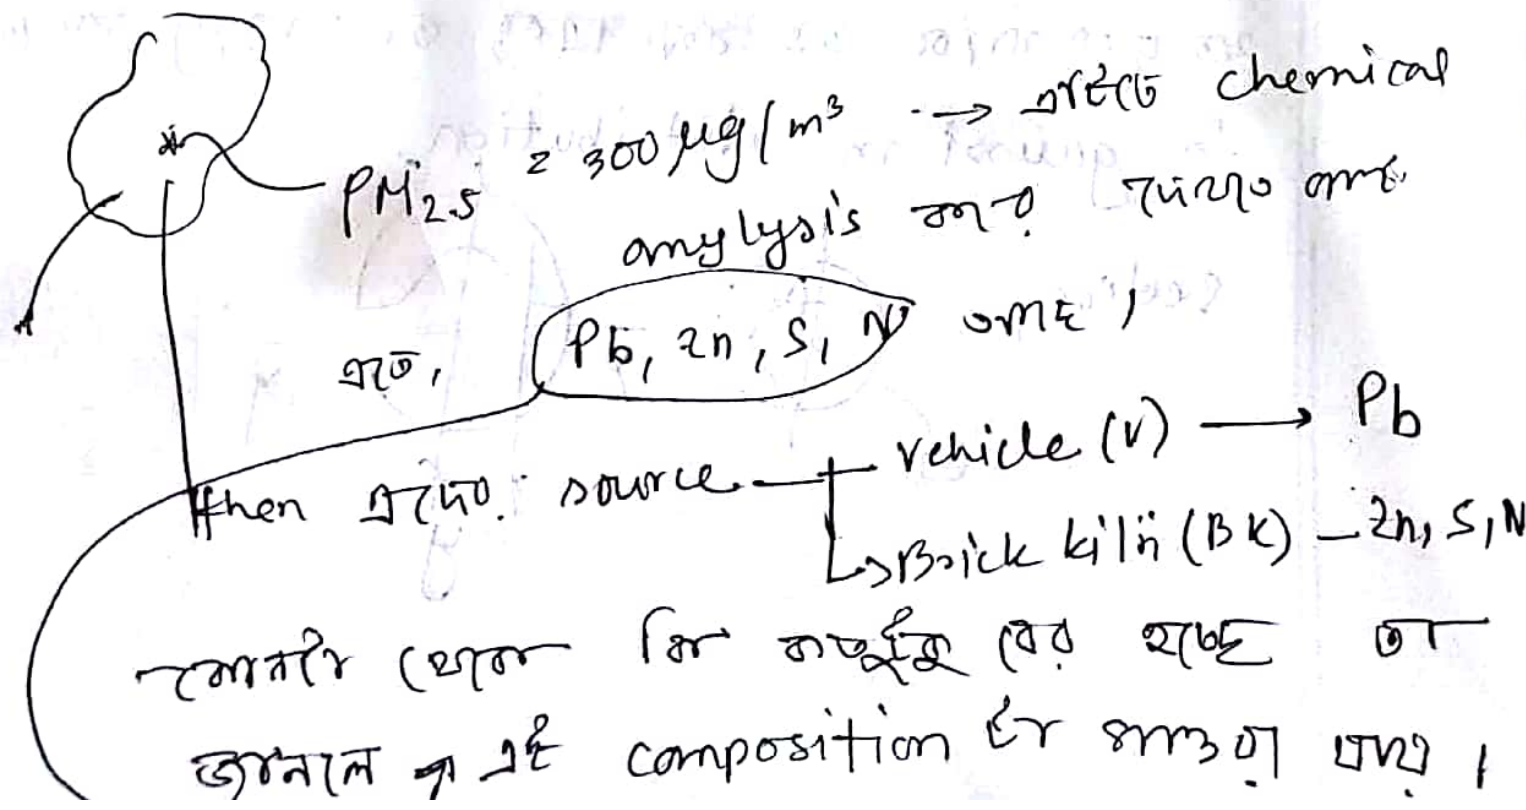 PM2.5 = 300 μg/m³ → এইটে chemical
anylysis করে দেখা গেছে
এতে, Pb, Zn, S, N আছে,
then এদের source vehicle (V) → Pb
Brick kiln (BK) - Zn, S, N
কোনটা থেকে কি কতটুকু বের হচ্ছে তা
জানলে এই composition টা পাওয়া যায়।